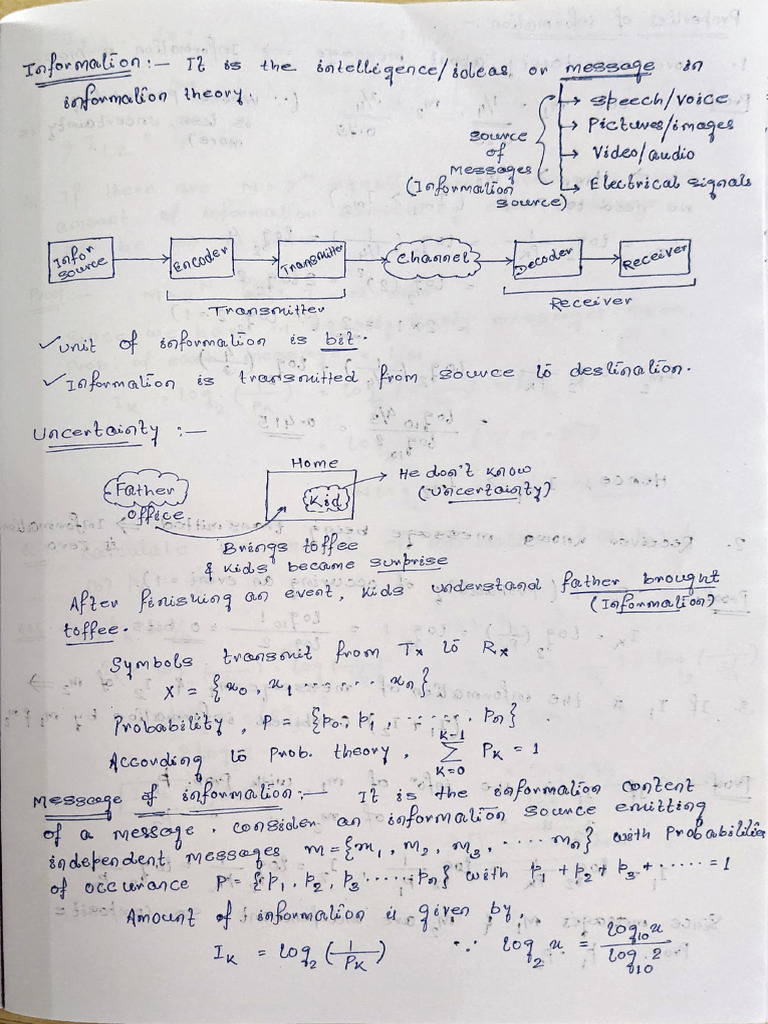 Information :- It is the intelligence/ideas or message in
information theory.
→ Speech/voice
→ Pictures/images
→ Video/audio
→ Electrical signals
source
of
Messages
(Information
source)
Infor
source
Encoder
Transmitter
Channel
Decoder
Receiver
Transmitter
Receiver
✓ Unit of information is bit.
✓ Information is transmitted from source to destination.
Uncertainty :-
Home
Father
office
Kid
He don't know
(Uncertainty)
Brings toffee
& kids became surprise
After finishing an event, kids understand father brought
(Information)
toffee.
Symbols transmit from Tx to Rx
X = {x0, x1 ...... xn}
Probability, P = {p0, p1, ......., pn}
According to Prob. theory, K-1 ∑ K=0 PK = 1
Message of information :- It is the information content
of a message. consider an information source emitting
independent messages m={m1, m2, m3, .... mn} with Probabilities
of occurance P = {p1, p2, p3 .....pn} with p1 + p2 + p3 + ...... = 1
Amount of information is given by,
IK = log2 (1/PK) ∵ log2 x = log10 x / log10 2